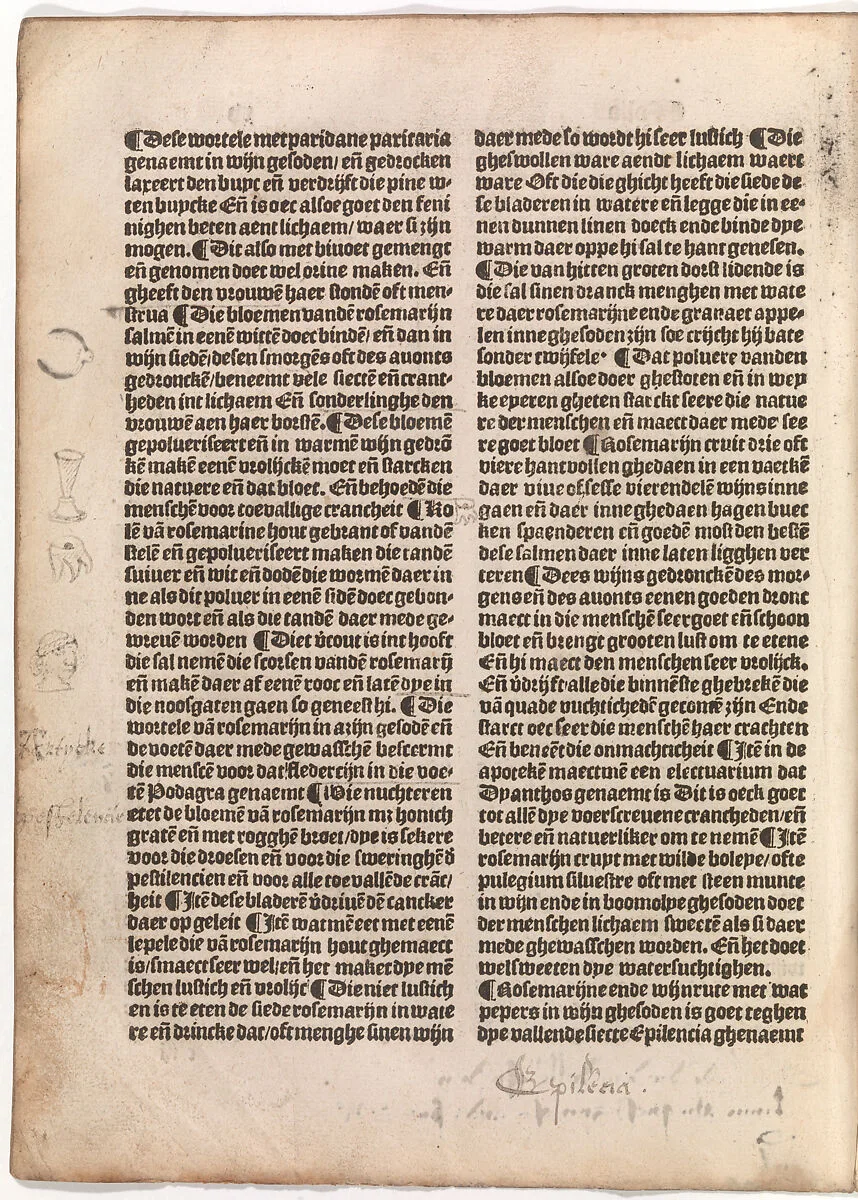 ¶Dese wortele met paridane paritaria
genaemt in wijn gesoden/ en̄ gedrocken
laxeert den buyc en̄ verdrijft die pine w-
ten buycke En̄ is oec alsoe goet den feni
nighen beten aent lichaem/ waer si zijn
mogen. ¶Dit also met bivoet gemengt
en̄ genomen doet wel orine maken. En̄
gheeft den vrouwē haer stondē oft men-
strua ¶Die bloemen vandē rosemarijn
salmē in eenē wittē doec bindē/ en̄ dan in
wijn siedē/ desen smorgēs oft des avonts
gedronckē/ beneemt vele siectē en̄ crant-
heden int lichaem En̄ sonderlinghe den
vrouwē aen haer borstē. ¶Dese bloemē
gepolueriseert en̄ in warmē wijn gedrō
kē makē eenē vrolijckē moet en̄ starcken
die natuere en̄ dat bloet. En̄ behoedē die
menschē voor toevallige crancheit ¶Ko
lē vā rosemarine hout gebrant of vandē
stelē en̄ gepolueriseert maken die tandē
suiver en̄ wit en̄ dodē die wormē daer in
ne als dit poluer in eenē sidē doec gebon-
den wort en̄ als die tandē daer mede ge-
wreuē worden ¶Diet v̄cout is int hooft
die sal nemē die scorsen vandē rosemarij
en̄ makē daer af eenē rooc en̄ latē dye in
die noosgaten gaen so geneest hi. ¶Die
wortele vā rosemarijn in azijn gesodē en̄
de voetē daer mede gewasschē beschermt
die menscē voor dat fledercijn in die voe-
tē Podagra genaemt ¶Die nuchteren
etet de bloemē vā rosemarijn mz honich
gratē en̄ met rogghē broet/ dye is sekere
voor die droesen en̄ voor die sweringhē d̄
pestilencien en̄ voor alle toevallēde crāc/
heit ¶Itē dese bladerē v̄driuē dē cancker
daer op geleit ¶Itē wat mē eet met eenē
lepele die vā rosemarijn hout ghemaect
is/ smaect seer wel/ en̄ het maket dye mē
schen lustich en̄ vrolijc ¶Die niet lustich
en is te eten de siede rosemarijn in wate
re en̄ drincke dat/ oft menghe sinen wijn
daer mede so wordt hi seer lustich ¶Die
gheswollen ware aendt lichaem waert
ware Oft die die ghicht heeft die siede de-
se bladeren in watere en̄ legge die in ee-
nen dunnen linen doeck ende binde dye
warm daer oppe hi sal te hant genesen.
¶Die van hitten groten dorst lidende is
die sal sinen dranck menghen met wate
re daer rosemarijne ende granaet appe-
len inne ghesoden zijn soe crijcht hij bate
sonder twijfele. ¶Dat poluere vanden
bloemen alsoe doer ghestoten en̄ in wey
ke eyeren gheten starckt seere die natue
re der menschen en̄ maect daer mede see
re goet bloet ¶Rosemarijn cruit drie oft
viere hantvollen ghedaen in een vaetkē
daer vive of sesse vierendelē wijns inne
gaen en̄ daer inne ghedaen hagen buec
ken spaenderen en̄ goedē most den bestē
dese salmen daer inne laten ligghen ver
teren ¶Dees wijns gedronckē des mor-
gens en̄ des avonts eenen goeden dronc
maect in die menschē seer goet en̄ schoon
bloet en̄ brengt grooten lust om te etene
En̄ hi maect den menschen seer vrolijck.
En̄ v̄drijft alle die binnēste ghebrekē die
van quade vuchtichedē gecomē zijn Ende
starct oec seer die menschē haer crachten
En̄ beneēt die onmachticheit ¶Itē in de
apotekē maectmē een electuarium dat
Dyanthos genaemt is Dit is oeck goet
tot allē dye voerscreuene crancheden/ en̄
betere en̄ natuerliker om te nemē ¶Itē
rosemarijn cruyt met wilde boleye/ ofte
pulegium siluestre oft met steen munte
in wijn ende in boomolye ghesoden doet
der menschen lichaem sweetē als si daer
mede ghewasschen worden. En̄ het doet
wel sweeten dye watersuchtighen.
¶Rosemarijne ende wijnrute met wat
pepers in wijn ghesoden is goet teghen
dye vallende siecte Epilencia ghenaemt
pestelencie
Epilēcia.